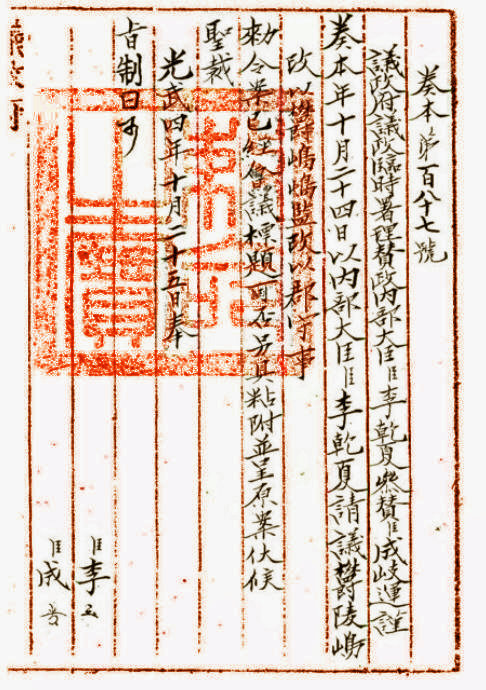 奏本第百八十七號
議政府議政臨時署理贊政內部大臣臣李乾夏參贊臣成岐運謹
奏本年十月二十四日以內部大臣臣李乾夏請議欝陵島
改以欝島島監改以郡守事
勅令案已經會議標題可否另具粘附並呈原案伏候
聖裁
光武四年十月二十五日奉
旨制曰可
臣李
臣成
議政府